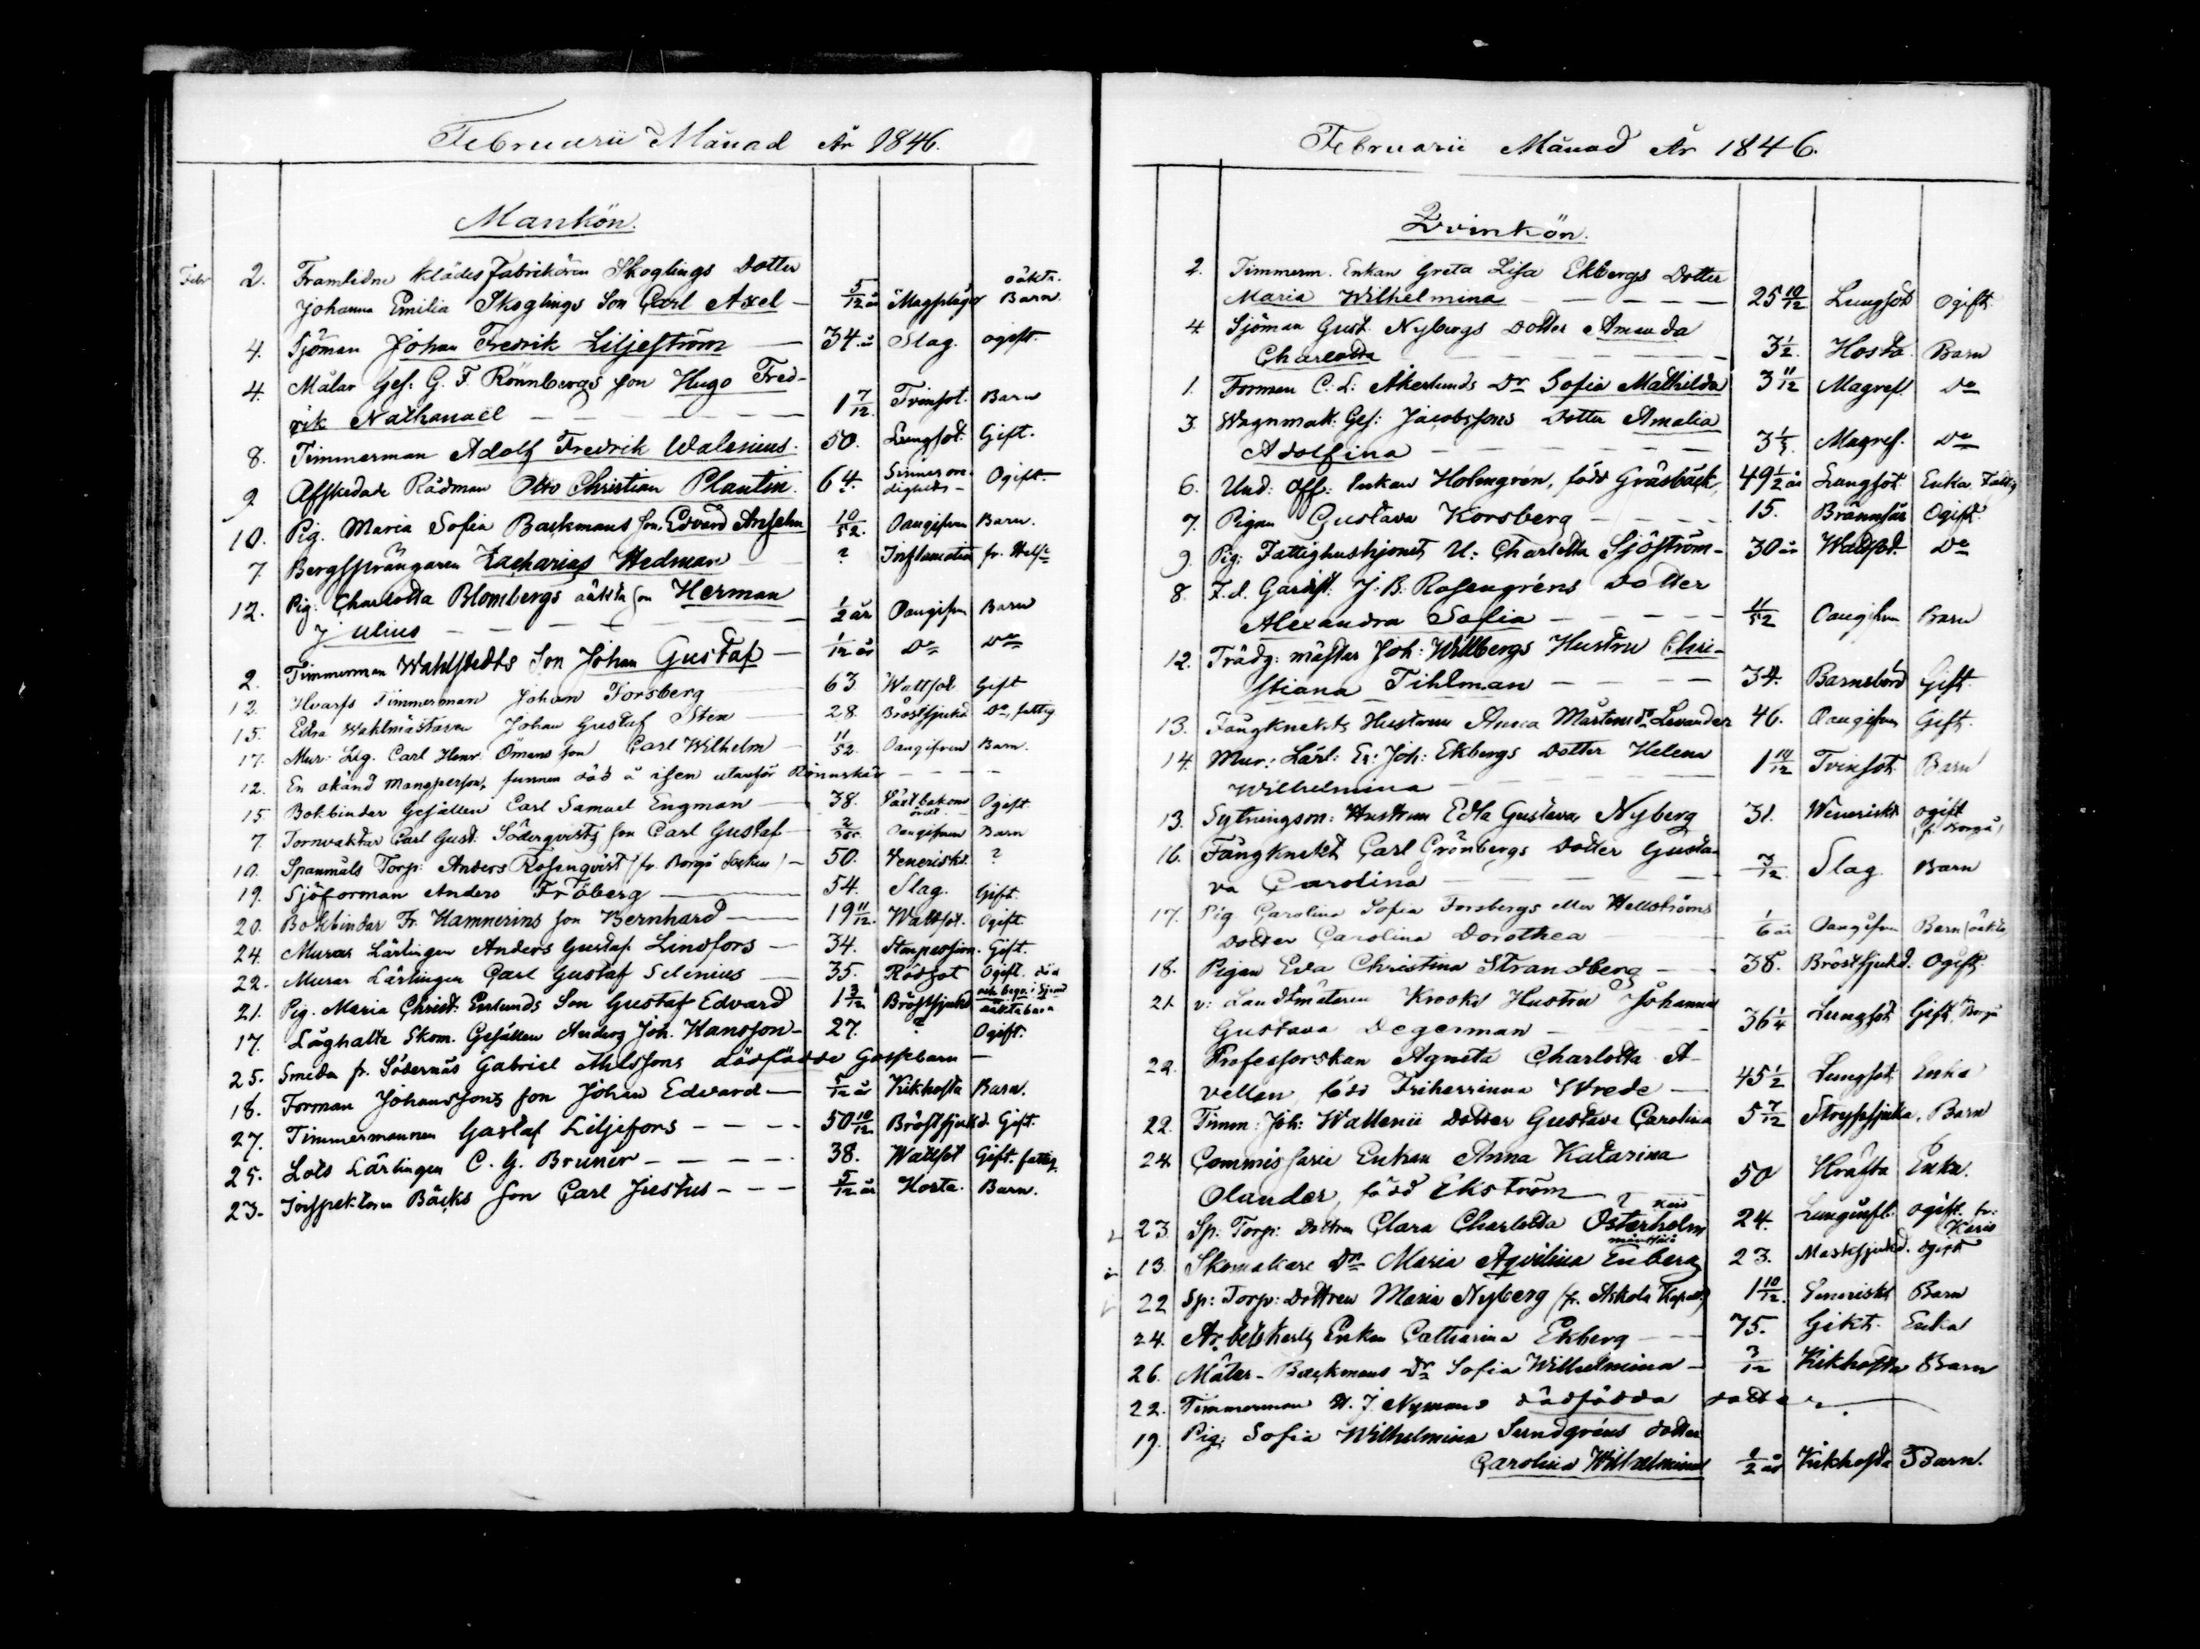 Februarii Månad År 1846.
Mankön.
Febr 2. Framledne Klädes fabrikören Skoglings Dotter
Johanna Emilia Skoglings Son Carl Axel — 5/12 år Magplågor oäkta. Barn.
4. Sjöman Johan Fredrik Liljeström — 34. å Slag. ogift.
4. Målar Ges. G. F. Rönnbergs son Hugo Fred-
rik Nathanaël — 1 7/12. Tvinsot. Barn
8. Timmerman Adolf Fredrik Walenius. 50. Lungsot. Gift.
9 Afskedade Rådman Otto Christian Plantin. 64. Ogift.
10. Pig. Maria Sofia Backmans son Edvard Anshelm 10/52. Oangifven Barn.
7. Bergsprängaren Zacharias Hedman ? Inflamation fr. Helsf
12. Pig: Charlotta Blombergs oäkta son Herman
Julius — 1/2 år Oangifven Barn
2. Timmerman Wahlstedts Son Johan Gustaf — 1/12 år Do Do
12. Hvarfs Timmerman Johan Forsberg 63. Wattsot Gift
15. Edra Waktmästaren Johan Gustaf Sten 28. Bröstsjukd. Do, fattig
17. Mur. Lrg. Carl Henr. Ömans son Carl Wilhelm — 11/52. Oangifven Barn.
12. En okänd mansperson, funnen död å isen utanför Rönnskär — — —
15 Bokbindar Gesällen Carl Samuel Engman — 38. Ogift
7. Tornvaktar Carl Gust. Söderqvists son Carl Gustaf — 2/365. Oangifven Barn
10. Spanmåls Torp: Anders Rosenqvist (fr Borgå Socken) — 50. Veneriskt. ?
19. Sjöforman Anders Fröberg — 54. Slag. Gift.
20. Bokbindar Fr. Hamnerins son Bernhard — 19 11/12. Wattsot. Ogift.
24. Murar Lärlingen Anders Gustaf Lindfors — 34. Gift.
22. Murar Lärlingen Carl Gustaf Selenius — 35. Rödsot Ogift. död
21. Pig. Maria Christ. Enlunds Son Gustaf Edvard 1 3/12 Bröstsjukd. oäkta barn
17. Låghalte Skom. Gesällen Anders Joh. Hansson — 27. ? Ogift.
25. Smeden fr. Södernäs Gabriel Ahlssons dödfödde Gossebarn —
18. Forman Johanssons son Johan Edvard — 5/12 år Kikhosta Barn.
27. Timmermannen Gustaf Liljefors — 50 10/12 Bröstsjukd. Gift.
25. Lots Lärlingen C. G. Brunér — 38. Wattsot Gift. fattig.
23. Inspektoren Bäcks son Carl Justus — 5/12 år Hosta. Barn.
Februarii Månad År 1846.
Qvinkön.
2. Timmerm. Enkan Greta Lisa Ekbergs Dotter
Maria Wilhelmina — 25 10/12 Lungsot Ogift.
4 Sjöman Gust. Nybergs Dotter Amanda
Charlotta — 3 1/2. Hosta. Barn
1. Forman C. L: Åkerlunds Dr Sofia Mathilda 3 11/12 Magref. Do
3. Wagnmak: Ges: Jacobssons Dotter Amalia
Adolfina — 3 1/3. Magref. Do
6. Und: Off: Enkan Holmgrén, född Gräsbäck, 49 1/2 år Lungsot. Enka. Fattig
7. Pigan Gustava Korsberg — 15. Brännsår Ogift.
9. Pig: Fattighushjonet U: Charlotta Sjöström — 30 år Wattsot. Do
8. F.d. Gardist. J. B. Rosengréns Dotter
Alexandra Sofia — 11/52 Oangifven Barn
12. Trädg: mästar Joh: Willbergs Hustru Chri-
stiana Tihlman — 34. Barnsbörd Gift.
13. Fångknekts Hustrun Anna Mårtensdr Levander 46. Oangifven Gift.
14. Mur: Lärl: Er: Joh: Ekbergs Dotter Helena
Wilhelmina — 1 10/12 Tvinsot. Barn
13. Sytningsm: Hustrun Edla Gustava Nyberg 31. Weneriskt ogift (fr. Borgå)
16. Fångknekt Carl Grönbergs Dotter Gusta-
va Carolina — 3/12 Slag. Barn
17. Pig Carolina Sofia Forsbergs eller Hellströms
dotter Carolina Dorothea — 1/6 år Oangifven Barn (oäkta)
18. Pigan Eva Christina Strandberg — 38. Bröstsjukd. Ogift.
21. v: Landtmätaren Krooks Hustru Johanna
Gustava Degerman — 36 1/4 Lungsot. Gift. fr. Borgå
22. Professorskan Agneta Charlotta A-
vellan, född Friherrinna Wrede — 45 1/2 Lungsot. Enka
22. Timm: Joh: Wallenii Dotter Gustava Carolina 5 7/12 Strypsjuka. Barn
24. Commissarie Enkan Anna Katarina
Olander, född Ekström — 50 Kräfta Enka.
23. Sp: Torp: Dottren Clara Charlotta Österholm 24. Lunginfl: ogift. fr: Karis
13. Skomakare Dr Maria Aqvilina Enberg 23. Masksjukd. Ogift
22 Sp: Torp: Dottren Maria Nyberg (fr. Askola Kapell) 1 10/12. Veneriskt Barn
24. Arbetskarls Enkan Catharina Ekberg — 75. Gikt. Enka
26. Målar- Backmans Dr Sofia Wilhelmina — 3/12 Kikhosta Barn
22. Timmerman H. J. Nymans dödfödda dotter.
19. Pig: Sofia Wilhelmina Sundgréns dotter
Carolina Wilhelmina 1/2 år Kikhosta Barn.